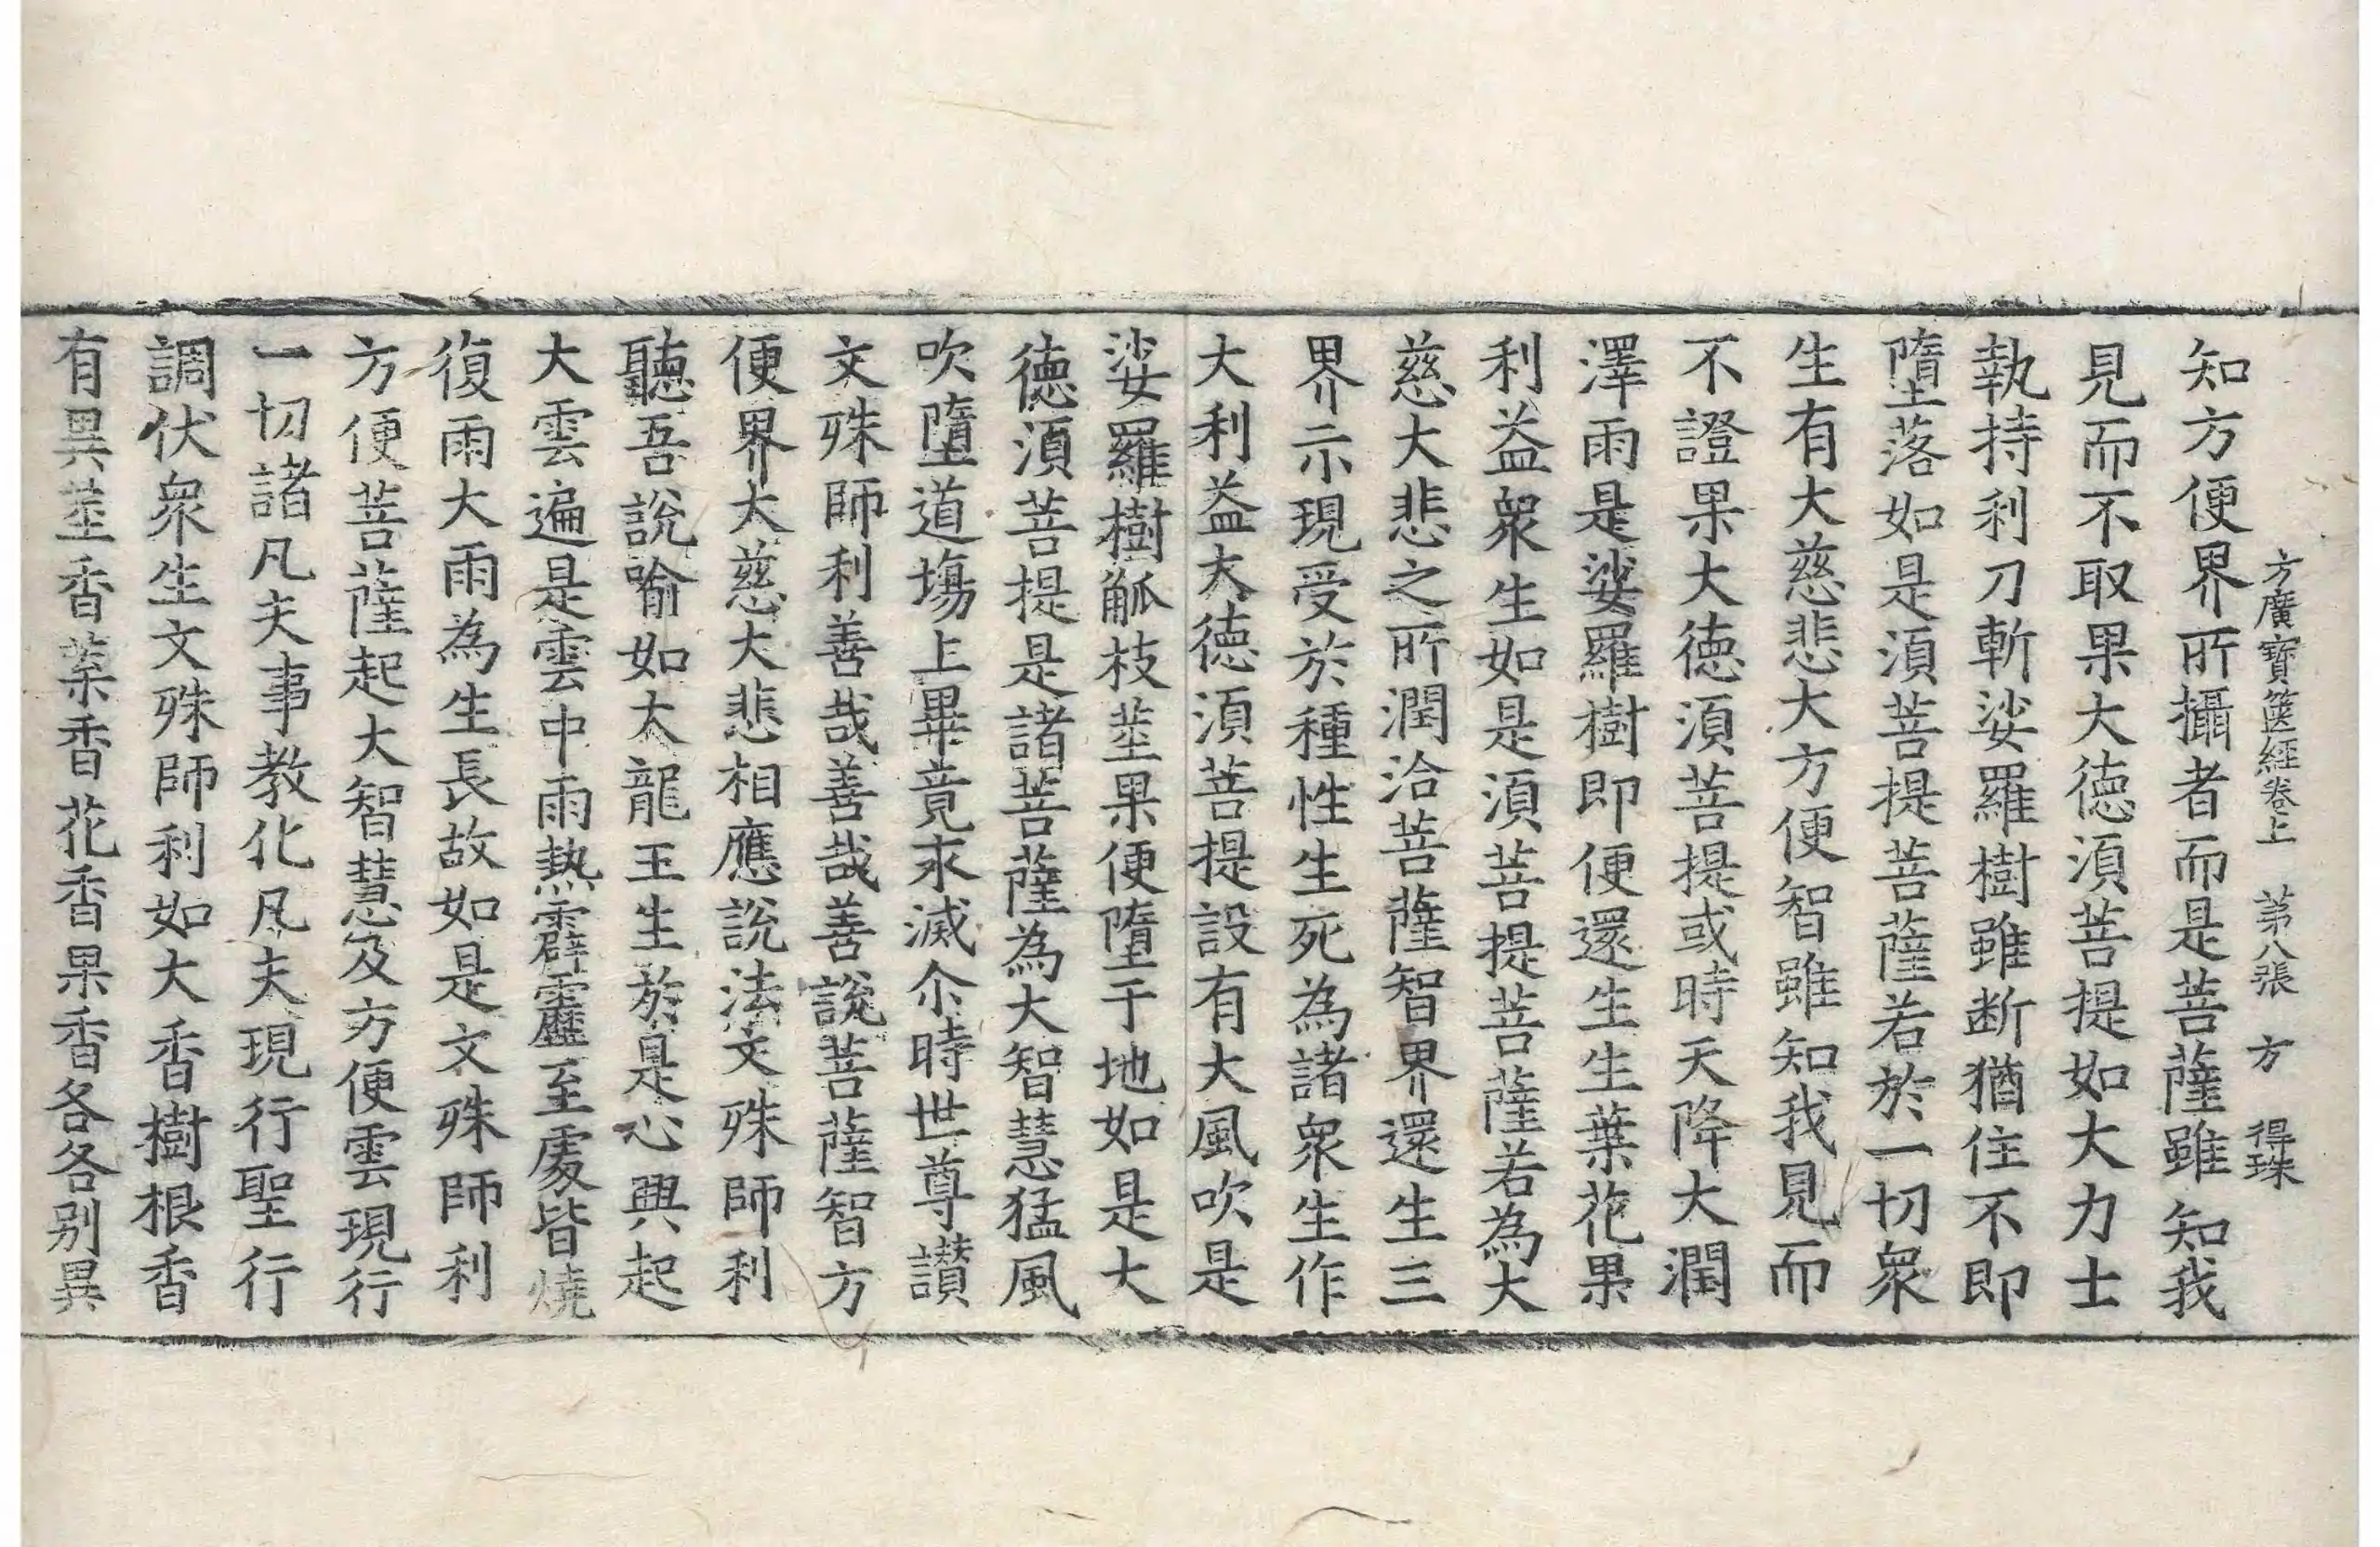 方廣寶篋經卷上 第八張 方 得珠
知方便界所攝者而是菩薩雖知我
見而不取果大德須菩提如大力士
執持利刀斬娑羅樹雖断猶住不即
墮落如是須菩提菩薩若於一切衆
生有大慈悲大方便智雖知我見而
不證果大德須菩提或時天降大潤
澤雨是娑羅樹即便還生生葉花果
利益衆生如是須菩提菩薩若為大
慈大悲之所潤洽菩薩智界還生三
界示現受於種性生死為諸衆生作
大利益大德須菩提設有大風吹是
娑羅樹觚枝莖果便墮于地如是大
德須菩提是諸菩薩為大智慧猛風
吹墮道場上畢竟永滅尒時世尊讃
文殊師利善哉善哉善說菩薩智方
便界大慈大悲相應說法文殊師利
聽吾說喻如大龍王生於是心興起
大雲遍是雲中雨熱霹靂至處皆燒
復雨大雨為生長故如是文殊師利
方便菩薩起大智慧及方便雲現行
一切諸凡夫事教化凡夫現行聖行
調伏衆生文殊師利如大香樹根香
有異莖香葉香花香果香各各别異